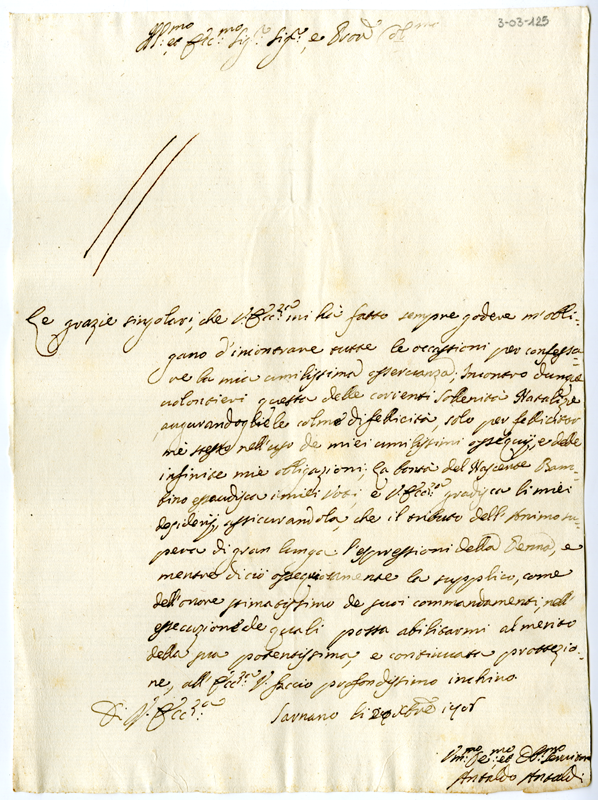 3-03-125
Ill.mo et Ecc.mo Sig.r Sig.r, e Pron
Le grazie singolari, che V. Ecc.za mi hà fatto sempre godere m'obli-
gano d'incontrare tutte le occasioni per confessa-
re la mia umilissima osseruanza; Incontro dunque
uolontieri questa delle correnti sollenità Natalizie
augurandogliele colme di fellicità, solo per fellicitar
me stesso nell'uso de miei umilissimi ossequij, e delle
infinite mie obligazioni; La bontà del Nascente Bam-
bino esaudisca i miei voti, e V. Ecc.za gradisca li miei
desiderij, assicurandola, che il tributo dell'Animo su-
pera di gran lunga l'espressioni della Penna, e
mentre di ciò ossequiosamente la supplico, come
dell'onore stimatissimo de suoi commandamenti, nell'
essecuzione de quali possa abilitarmi al merito
della sua potentissima, e continuata prottezio-
ne, all'Ecc.za V. faccio profondissimo inchino
Di V. Ecc.za Sarnano li Xbre
Um.mo De.mo et Ob.mo Seruitore
Antaldo Antaldi